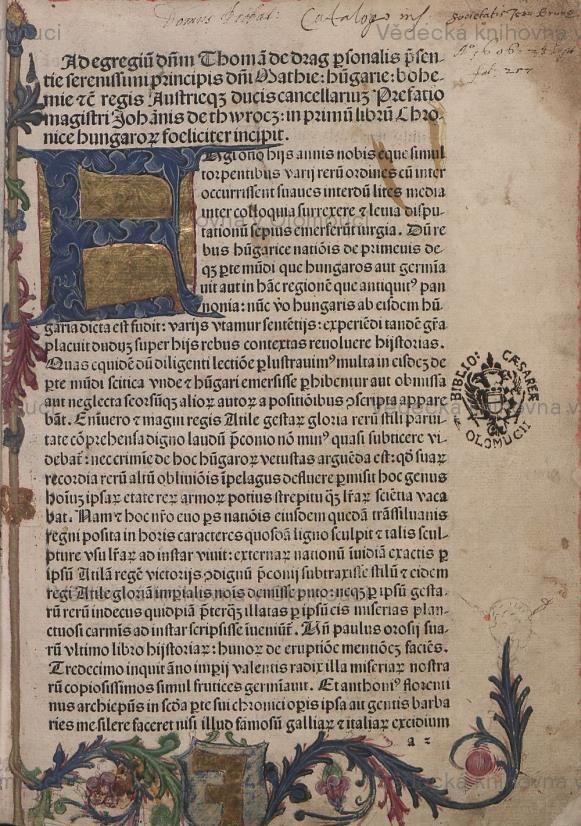 Catalogo ins.
Societatis Jesu Brunae
Ad egregiũ dñm Thomã de drag ꝑsonalis p̃sen-
tie serenissimi principis dñi Mathie: hũgarie: bohe-
mie ⁊c̃ regis Austrieqꝫ ducis cancellariuꝫ Prefatio
magistri Johãnis de thwrocz: in primũ librũ Chro-
nice hungaroꝝ foeliciter incipit.
hijs annis nobis eque simul
torpentibus varij rerũ ordines cũ inter
occurrissent suaues interdũ lites media
inter colloquia surrexere ⁊ leuia dispu-
tationũ sepius emerserũt iurgia. Dũ re
bus hũgarice natiõis de primeuis de-
qꝫ ꝑte mũdi que hungaros aut germia
uit aut in hãc regionẽ que antiquit⁹ pan
nonia: nũc v̊o hungaris ab eisdem hũ-
garia dicta est fudit: varijs vtamur sentẽtijs: experiẽdi tandẽ gr̃a
placuit duduꝫ super hijs rebus contextas reuoluere hijstorias.
Quas equidẽ dũ diligenti lectiõe ꝑlustrauim⁹ multa in eisdeꝫ de
ꝑte mũdi scitica vnde ⁊ hũgari emersisse ꝑhibentur aut obmissa
aut neglecta seorsũqꝫ alioꝝ autoꝝ a positiõibus ꝯscripta appare
bãt. Enĩuero ⁊ magni regis Atile gestaꝝ gloria rerũ stili parui-
tate cõprehensa digno laudũ p̃conio nõ min⁹ quasi subticere vi-
debat̃: nec crimĩe de hoc hũgaroꝝ vetustas arguẽda est: qđ suaꝝ
recordia rerũ altũ obliuiõis ĩpelagus defluere ꝑmisit hoc genus
hoĩuꝫ ipsaꝝ etate reꝝ armoꝝ potius strepitu qꝫ lr̃aꝝ sciẽtia vaca
bat. Nam ⁊ hoc nr̃o euo ꝑs natiõis eiusdem quedã trãssiluanis
regni posita in horis caracteres quosdã ligno sculpit ⁊ talis scul-
pture vsu lr̃aꝝ ad instar viuit: externaꝝ nationũ ĩuidiã exactis ꝑ
ipsũ Atilã regẽ victorijs ꝯdignũ p̃conij subtraxisse stilũ ⁊ eidem
regi Atile gloriã imp̃ialis nois demisse puto: neqꝫ ꝑ ipsũ gesta-
rũ rerũ indecus quidpiã p̃terqꝫ illatas ꝑ ipsũ eis miserias plan-
ctuosi carmĩs ad instar scripsisse ĩueniũt. Hĩ paulus orosij sua-
rũ vltimo libro hijstoriaꝝ: hunoꝝ de eruptiõe mentiõeꝫ faciẽs.
Tredecimo inquit ãno imp̃ij valentis radix illa miseriaꝝ nostra
rũ copiosissimos simul frutices germĩauit. Et anthoni⁹ florenti
nus archiep̃us in scđa ꝑte sui chronici op̃is ipsa aut gentis barba
ries me silere faceret nisi illud famosũ galliaꝝ ⁊ italiaꝝ excidium
a 2
BIBLIO: CÆSAREÆ
OLOMUCII
Vědecká knihovna v Olomouci